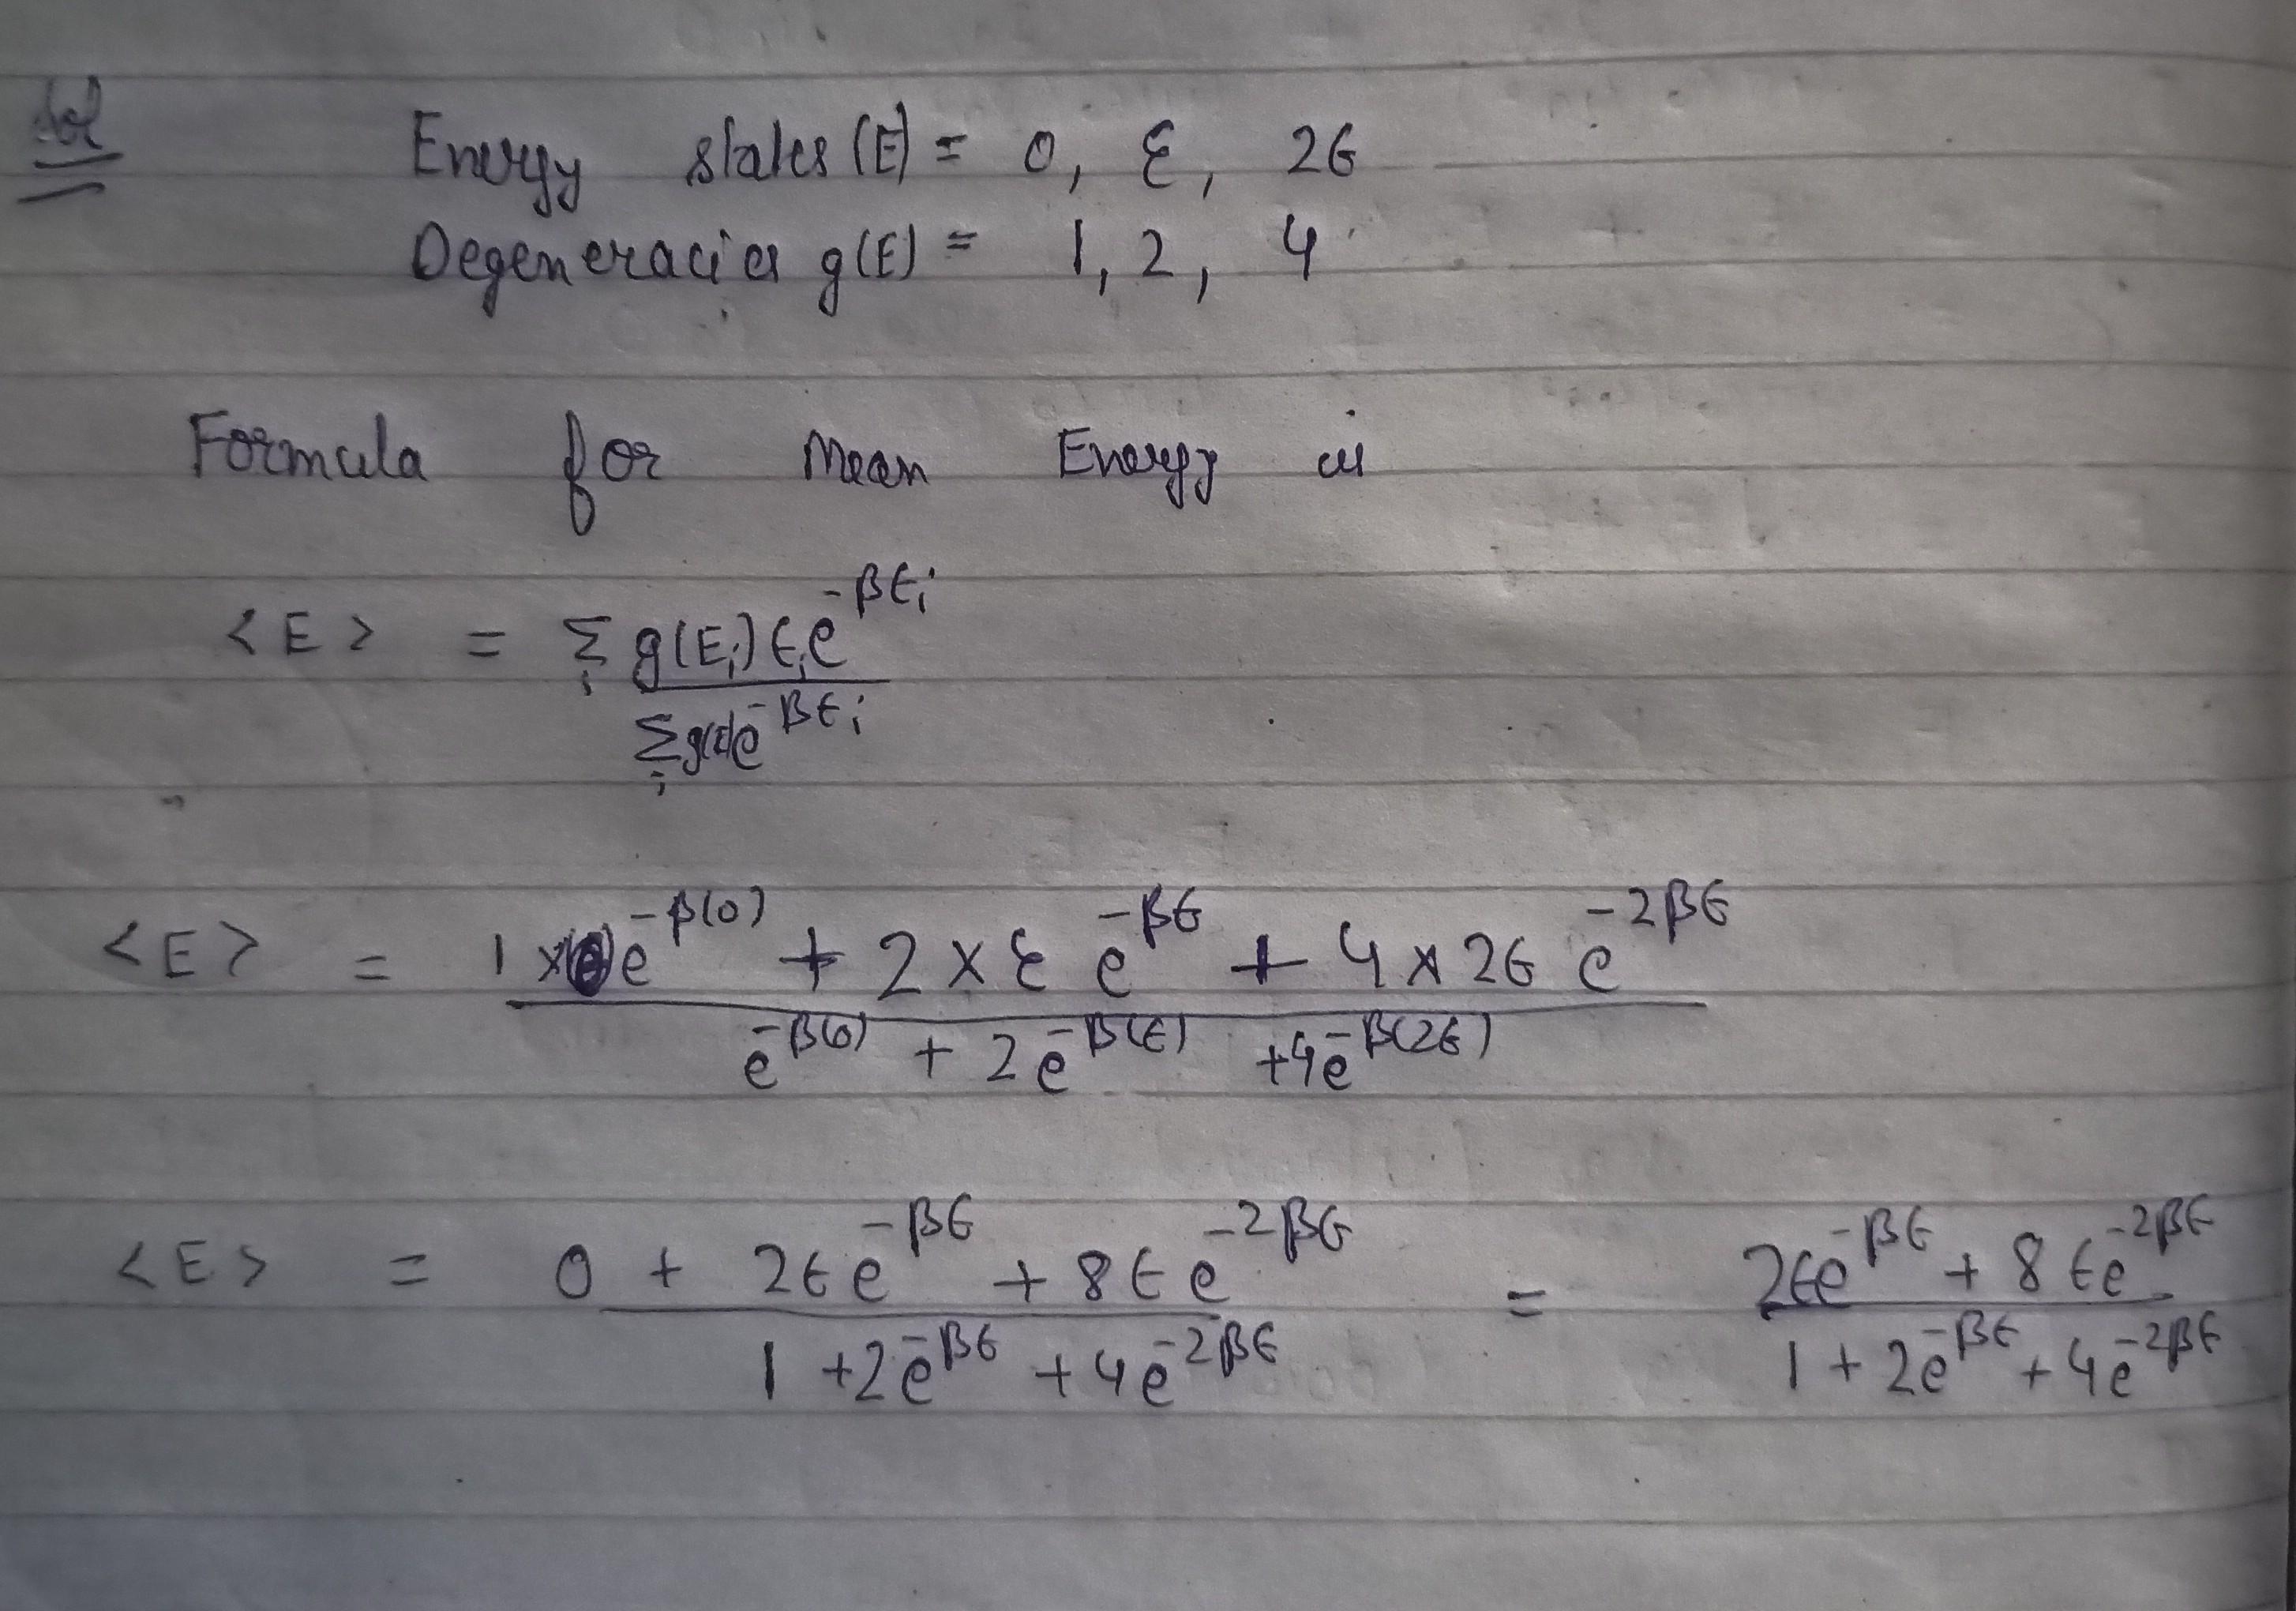 Sol
Energy states (E) = 0, ε, 2ϵ
Degeneracies g(E) = 1, 2, 4
Formula for Mean Energy is
<E> = Σ_i g(E_i) ϵ_i e^{-βϵ_i} / Σ_i g(E) e^{-βϵ_i}
<E> = 1 × (0) e^{-β(0)} + 2 × ε e^{-βϵ} + 4 × 2ϵ e^{-2βϵ} / e^{-β(0)} + 2e^{-β(ϵ)} + 4e^{-β(2ϵ)}
<E> = 0 + 2ϵe^{-βϵ} + 8ϵe^{-2βϵ} / 1 + 2e^{-βϵ} + 4e^{-2βϵ} = 2ϵe^{-βϵ} + 8ϵe^{-2βϵ} / 1 + 2e^{-βϵ} + 4e^{-2βϵ}